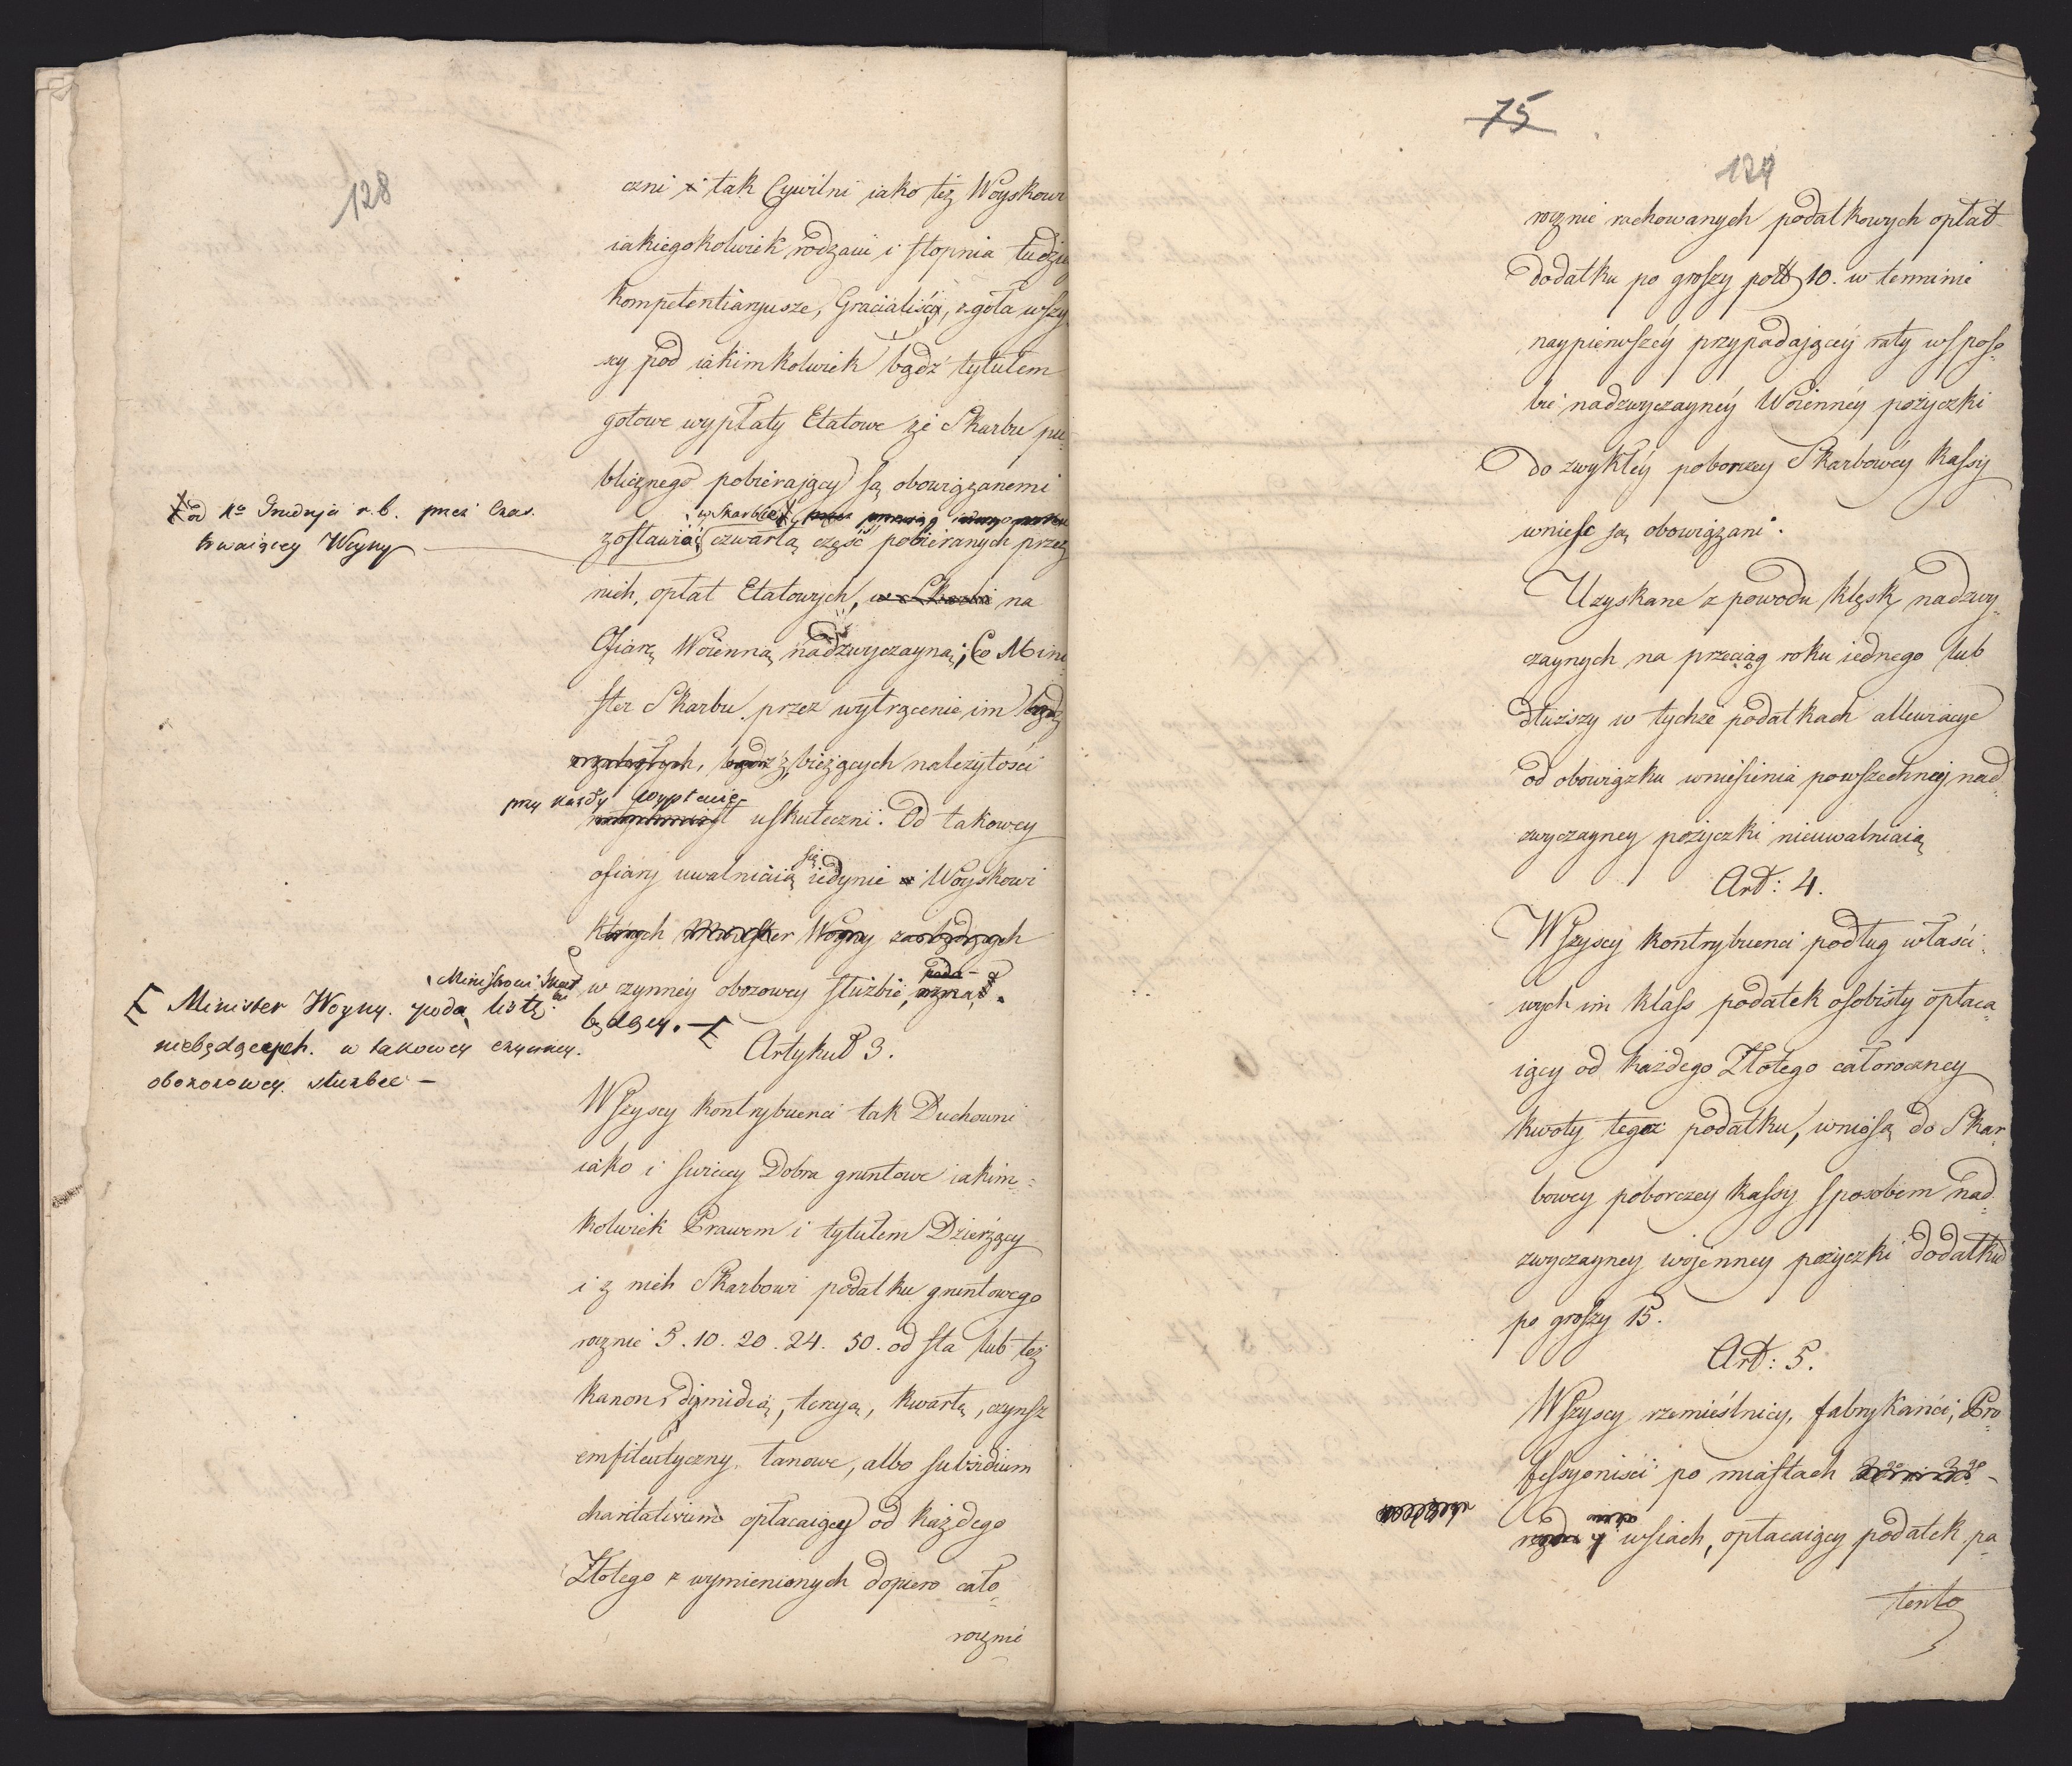 128
czni i tak Cywilni iako też Woyskowi
iakiegokolwiek rodzaiu i stopnia tudzie
kompetentiaryusze, Gracialiści, zgoła wszy
scy pod iakimkolwiek bądź tytułem
gotowe wypłaty Etatowe ze Skarbu pu=
blicznego pobieraiący są obowiązanemi
w Skarbie przez przeciąg
zostawić czwartą część pobieranych przez
nich, opłat Etatowych, w Skarbie na
Ofiarę Woienną nadzwyczayną; Co Mini
ster Skarbu przez wytrącenie im bądź
zaległych, bądź z bieżących należytości
przy każdy wypłacie
natychmiast uskuteczni. Od takowey
się
ofiary uwalniaią iedynie Woyskowi
których Minister Woyny za będących
w czynney obozowey służbie, uzna
będący.
od 1o Grudnja r. b. przez czas
trwaiącey Woyny
Ministrowi Skar
bu
Minister Woyny poda listę
niebędących w takowey czynney
obozowey służbie –
Artykuł 3.
Wszyscy kontrybuenci tak Duchowni
iako i swieccy Dobra gruntowe iakim=
kolwiek Prawem i tytułem Dzierżący
i z nich Skarbowi podatku gruntowego
rocznie 5. 10. 20. 24. 50. od sta lub też
kanon, dymidią, tercyą, kwartę, czynsz
emfiteutyczny, łanowe, albo subsidium
charitativum opłacaiący od każdego
Złotego z wymienionych dopiero cało=
rocznie
75
129
rocznie rachowanych podatkowych opłat
dodatku po groszy pol 10. w terminie
naypierwszéy przypadaiącéy raty wsposo=
bie nadzwyczaynéy Woiennéy pożyczki
do zwykłéy poborczey Skarbowéy Kassy
wnieść są obowiązani.
Uzyskane z powodu klęsk nadzwy=
czaynych na przeciąg roku iednego lub
dłuższy w tychże podatkach allewiacye
od obowiązku wniesienia powszechney nad=
zwyczayney pożyczki nieuwalniaią
Art: 4.
Wszyscy kontrybuenci podług właści=
wych im klass podatek osobisty opłaca=
iący od każdego Złotego całoroczney
kwoty tegoż podatku, wniosą do Skar=
bowey poborczey kassy sposobem nad=
zwyczayney wojenney pożyczki dodatku
po groszy 15.
Art: 5.
Wszyscy rzemieślnicy, fabrykańci, Pro=
fessyoniści po miastach
i wsiach, opłacaiący podatek pa=
tento